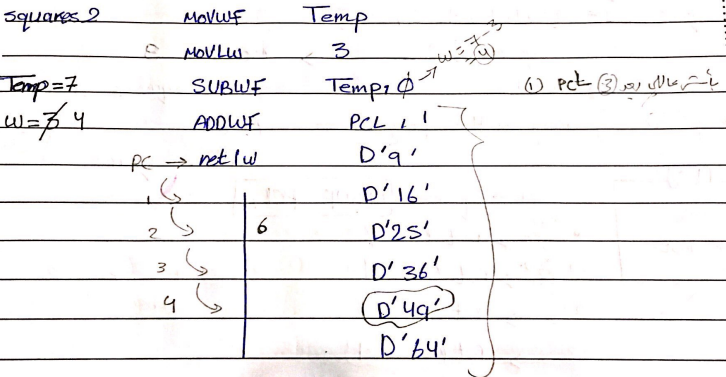 squares2 MOVWF Temp
MOVLW 3
w = 7-3
= 4
Temp=7 SUBWF Temp, 0 (1) PCL (3)
w=3 4 ADDWF PCL, 1
PC → retlw D'9'
1 D'16'
2 6 D'25'
3 D'36'
4 D'49'
D'64'